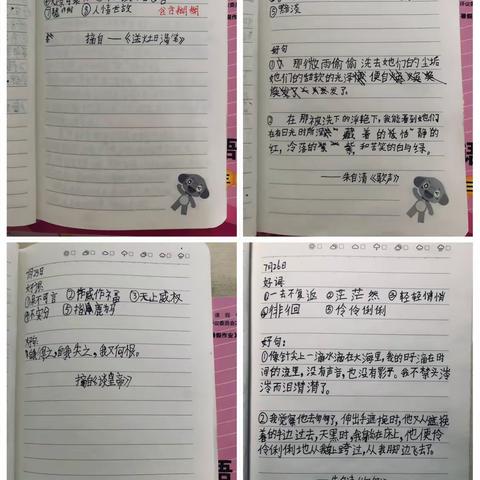 ⑧人情世故
含含糊糊
摘自——《送灶日漫笔》
③黯淡
好句
① 那微雨偷偷洗去她们的尘垢
她们的甜软的光泽便自焕
发了。
② 在那被洗去的浮艳下,我能看到她们
在有日光时所深藏着的恬静的
红,冷落的紫,和苦笑的白与绿。
——朱自清《歌声》
7月25日
好词
②作威作福 ③无上威权
⑤指鹿为马
好句
得之,自我失之,我又何恨。
摘自《谈皇帝》
7月26日
好词
①一去不复返 ②茫茫然 ③轻轻悄悄
④徘徊 ⑤伶伶俐俐
好句:
①像针尖上一滴水滴在大海里,我的日子滴在时
间的流里,没有声音,也没有影子。我不禁头涔
涔而泪潸潸了。
②我觉察他去匆匆了,伸出手遮挽时,他又从遮挽
着的手边过去,天黑时,我躺在床上,他便伶
伶俐俐地从我身上跨过,从我脚边飞去了。